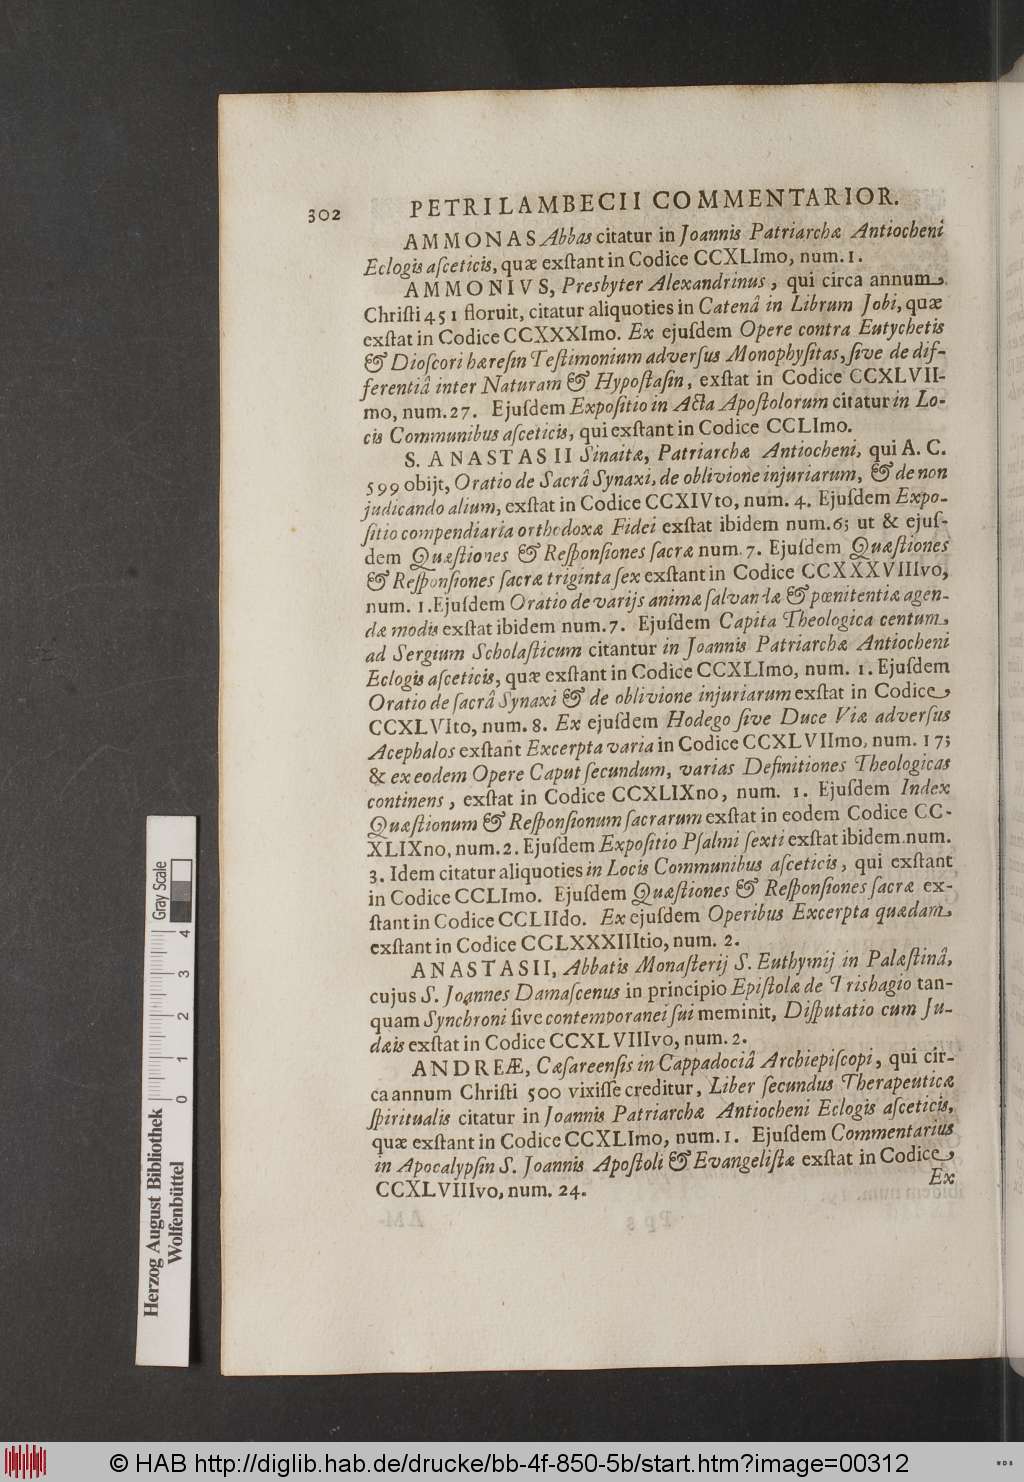 302 PETRI LAMBECII COMMENTARIOR.
AMMONAS Abbas citatur in Joannis Patriarchæ Antiocheni
Eclogis aſceticis, quæ exſtant in Codice CCXLImo, num. 1.
AMMONIVS, Presbyter Alexandrinus, qui circa annum
Chriſti 451 floruit, citatur aliquoties in Catenâ in Librum Jobi, quæ
exſtat in Codice CCXXXImo. Ex ejuſdem Opere contra Eutychetis
& Dioſcori hæreſin Teſtimonium adverſus Monophyſitas, ſive de dif-
ferentiâ inter Naturam & Hypoſtaſin, exſtat in Codice CCXLVII-
mo, num. 27. Ejuſdem Expoſitio in Acta Apoſtolorum citatur in Lo-
cis Communibus aſceticis, qui exſtant in Codice CCLImo.
S. ANASTASII Sinaitæ, Patriarchæ Antiocheni, qui A. C.
599 obijt, Oratio de Sacrâ Synaxi, de oblivione injuriarum, & de non
judicando alium, exſtat in Codice CCXIVto, num. 4. Ejuſdem Expo-
ſitio compendiaria orthodoxæ Fidei exſtat ibidem num. 6; ut & ejuſ-
dem Quæſtiones & Reſponſiones ſacræ num. 7. Ejuſdem Quæſtiones
& Reſponſiones ſacræ triginta ſex exſtant in Codice CCXXXVIIIvo,
num. 1. Ejuſdem Oratio de varijs animæ ſalvandæ & pœnitentiæ agen-
dæ modis exſtat ibidem num. 7. Ejuſdem Capita Theologica centum,
ad Sergium Scholaſticum citantur in Joannis Patriarchæ Antiocheni
Eclogis aſceticis, quæ exſtant in Codice CCXLImo, num. 1. Ejuſdem
Oratio de ſacrâ Synaxi & de oblivione injuriarum exſtat in Codice
CCXLVIto, num. 8. Ex ejuſdem Hodego ſive Duce Viæ adverſus
Acephalos exſtant Excerpta varia in Codice CCXLVIImo, num. 17;
& ex eodem Opere Caput ſecundum, varias Definitiones Theologicas
continens, exſtat in Codice CCXLIXno, num. 1. Ejuſdem Index
Quæſtionum & Reſponſionum ſacrarum exſtat in eodem Codice CC-
XLIXno, num. 2. Ejuſdem Expoſitio Pſalmi ſexti exſtat ibidem num.
3. Idem citatur aliquoties in Locis Communibus aſceticis, qui exſtant
in Codice CCLImo. Ejuſdem Quæſtiones & Reſponſiones ſacræ ex-
ſtant in Codice CCLIIdo. Ex ejuſdem Operibus Excerpta quædam
exſtant in Codice CCLXXXIIItio, num. 2.
ANASTASII, Abbatis Monaſterij S. Euthymij in Palæſtinâ,
cujus S. Joannes Damaſcenus in principio Epiſtolæ de Trishagio tan-
quam Synchroni ſive contemporanei ſui meminit, Diſputatio cum Ju-
dæis exſtat in Codice CCXLVIIIvo, num. 2.
ANDREÆ, Cæſareenſis in Cappadociâ Archiepiſcopi, qui cir-
ca annum Chriſti 500 vixiſſe creditur, Liber ſecundus Therapeuticæ
ſpiritualis citatur in Joannis Patriarchæ Antiocheni Eclogis aſceticis,
quæ exſtant in Codice CCXLImo, num. 1. Ejuſdem Commentarius
in Apocalypſin S. Joannis Apoſtoli & Evangeliſtæ exſtat in Codice
CCXLVIIIvo, num. 24.
Ex
Herzog August Bibliothek
Wolfenbüttel
0 1 2 3 4
Gray Scale
© HAB http://diglib.hab.de/drucke/bb-4f-850-5b/start.htm?image=00312